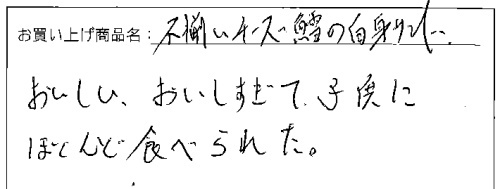 お買い上げ商品名: 不揃いチーズ鱈の白身サンド.
おいしい、おいしすぎて、子供に
ほとんど食べられた。